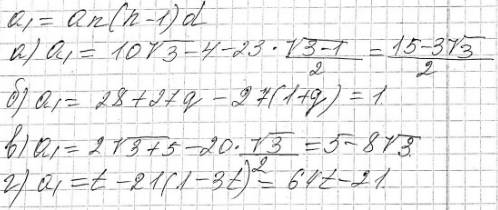 a₁ = an(n-1)d
а) a₁ = 10√3 - 4 - 23 · √3-1/2 = 15-3√3/2
б) a₁ = 28 + 27g - 27(1+g) = 1.
в) a₁ = 2√3+5 - 20 · √3/2 = 5 - 8√3
г) a₁ = t - 21(1-3t) = 64t - 21.